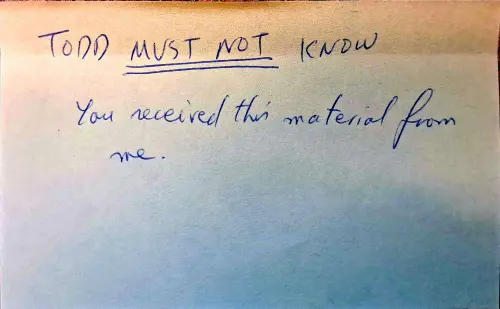 TODD MUST NOT KNOW
You received this material from
me.